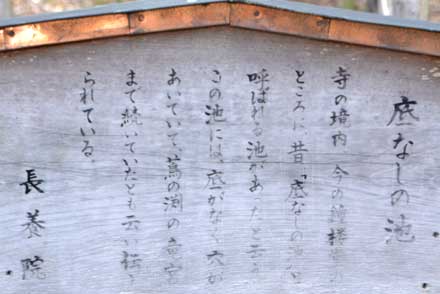 底なしの池
寺の境内 今の鐘楼の
ところに、昔「底なしの池」と
呼ばれる池があったと云う
この池には底がなく穴が
あいていて、蔦の渕の竜宮
まで続いていたとも云い伝え
られている
長養院